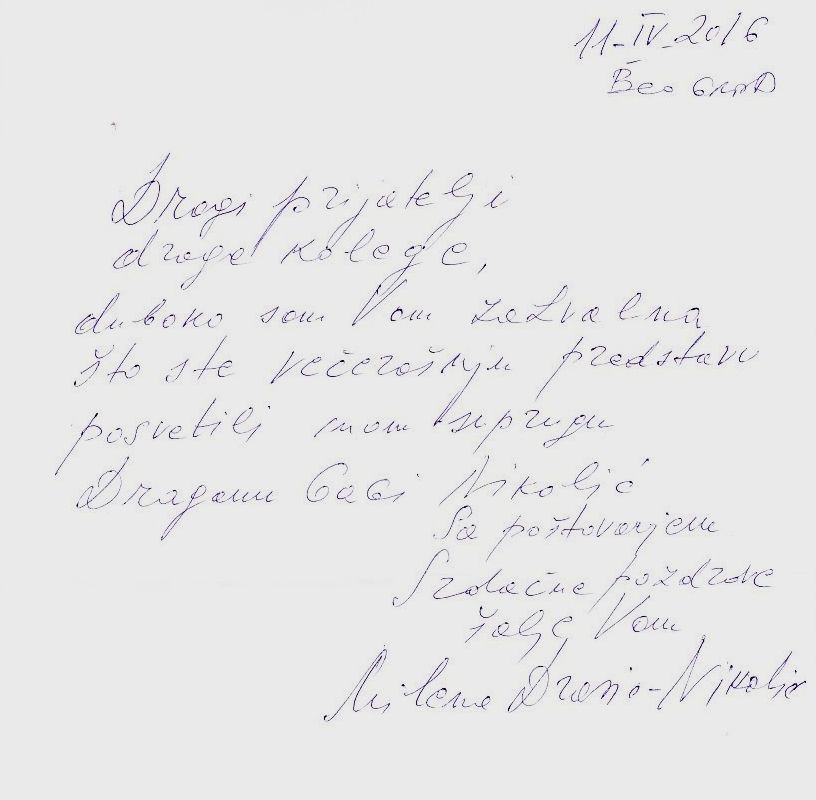 11-IV-2016
Beograd
Dragi prijatelji
drage kolege,
duboko sam Vam zahvalna
što ste večerašnju predstavu
posvetili mom suprugu
Draganu Gagi Nikolić
Sa poštovanjem
Srdačne pozdrave
šalje Vam
Milena Dravić-Nikolić